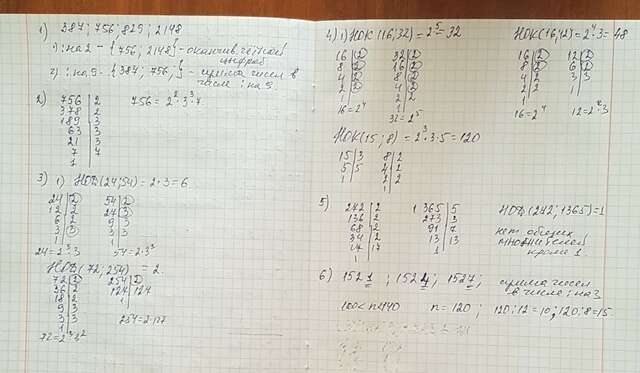 1) 387; 756; 829; 2148
1) : на 2 - {756, 2148} - оканчив. чётной
цифрой
2) : на 9 - {387; 756,} - сумма чисел в
числе : на 9.
2) 756 | 2 756 = 2² · 3³ · 7
378 | 2
189 | 3
63 | 3
21 | 3
7 | 7
1
3) 1) НОД(24; 54) = 2 · 3 = 6
24 | 2 54 | 2
12 | 2 27 | 3
6 | 2 9 | 3
3 | 3 3 | 3
1 1
24 = 2³ · 3 54 = 2 · 3³
НОД(72; 254) = 2
72 | 2 254 | 2
36 | 2 127 | 127
18 | 2 1
9 | 3
3 | 3 254 = 2 · 127
1
72 = 2³ · 3²
4) 1) НОК(16; 32) = 2⁵ = 32 НОК(16; 12) = 2⁴ · 3 = 48
16 | 2 32 | 2 16 | 2 12 | 2
8 | 2 16 | 2 8 | 2 6 | 2
4 | 2 8 | 2 4 | 2 3 | 3
2 | 2 4 | 2 2 | 2 1
1 2 | 2 1
16 = 2⁴ 1 16 = 2⁴ 12 = 2² · 3
32 = 2⁵
НОК(15; 8) = 2³ · 3 · 5 = 120
15 | 3 8 | 2
5 | 5 4 | 2
1 2 | 2
1
5) 242 | 2 1365 | 5 НОД(242; 1365) = 1
136 | 2 273 | 3
68 | 2 91 | 7 нет общих
34 | 2 13 | 13 множителей
17 | 17 1 кроме 1.
1
6) 1521; 1524; 1527; сумма чисел
в числе : на 3
100 < n < 140 n = 120; 120 : 12 = 10; 120 : 8 = 15